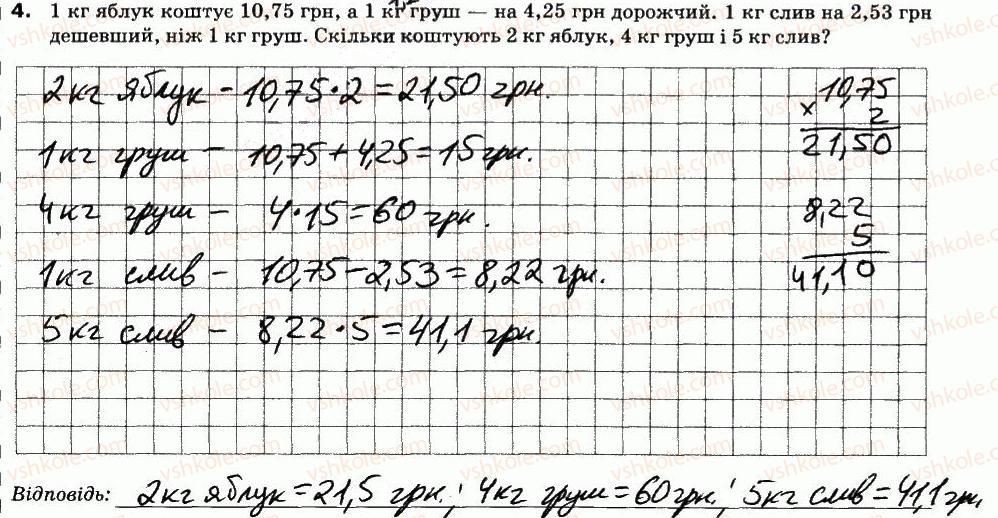 4. 1 кг яблук коштує 10,75 грн, а 1 кг груш — на 4,25 грн дорожчий. 1 кг слив на 2,53 грн
дешевший, ніж 1 кг груш. Скільки коштують 2 кг яблук, 4 кг груш і 5 кг слив?
2кг яблук - 10,75·2=21,50 грн.
1кг груш - 10,75+4,25=15грн.
4кг груш - 4·15=60 грн.
1кг слив - 10,75-2,53=8,22грн.
5кг слив - 8,22·5=41,1грн.
10,75
× 2
21,50
8,22
5
41,10
Відповідь: 2кг яблук=21,5 грн, 4кг груш=60грн, 5кг слив=41,1грн
vshkole.com